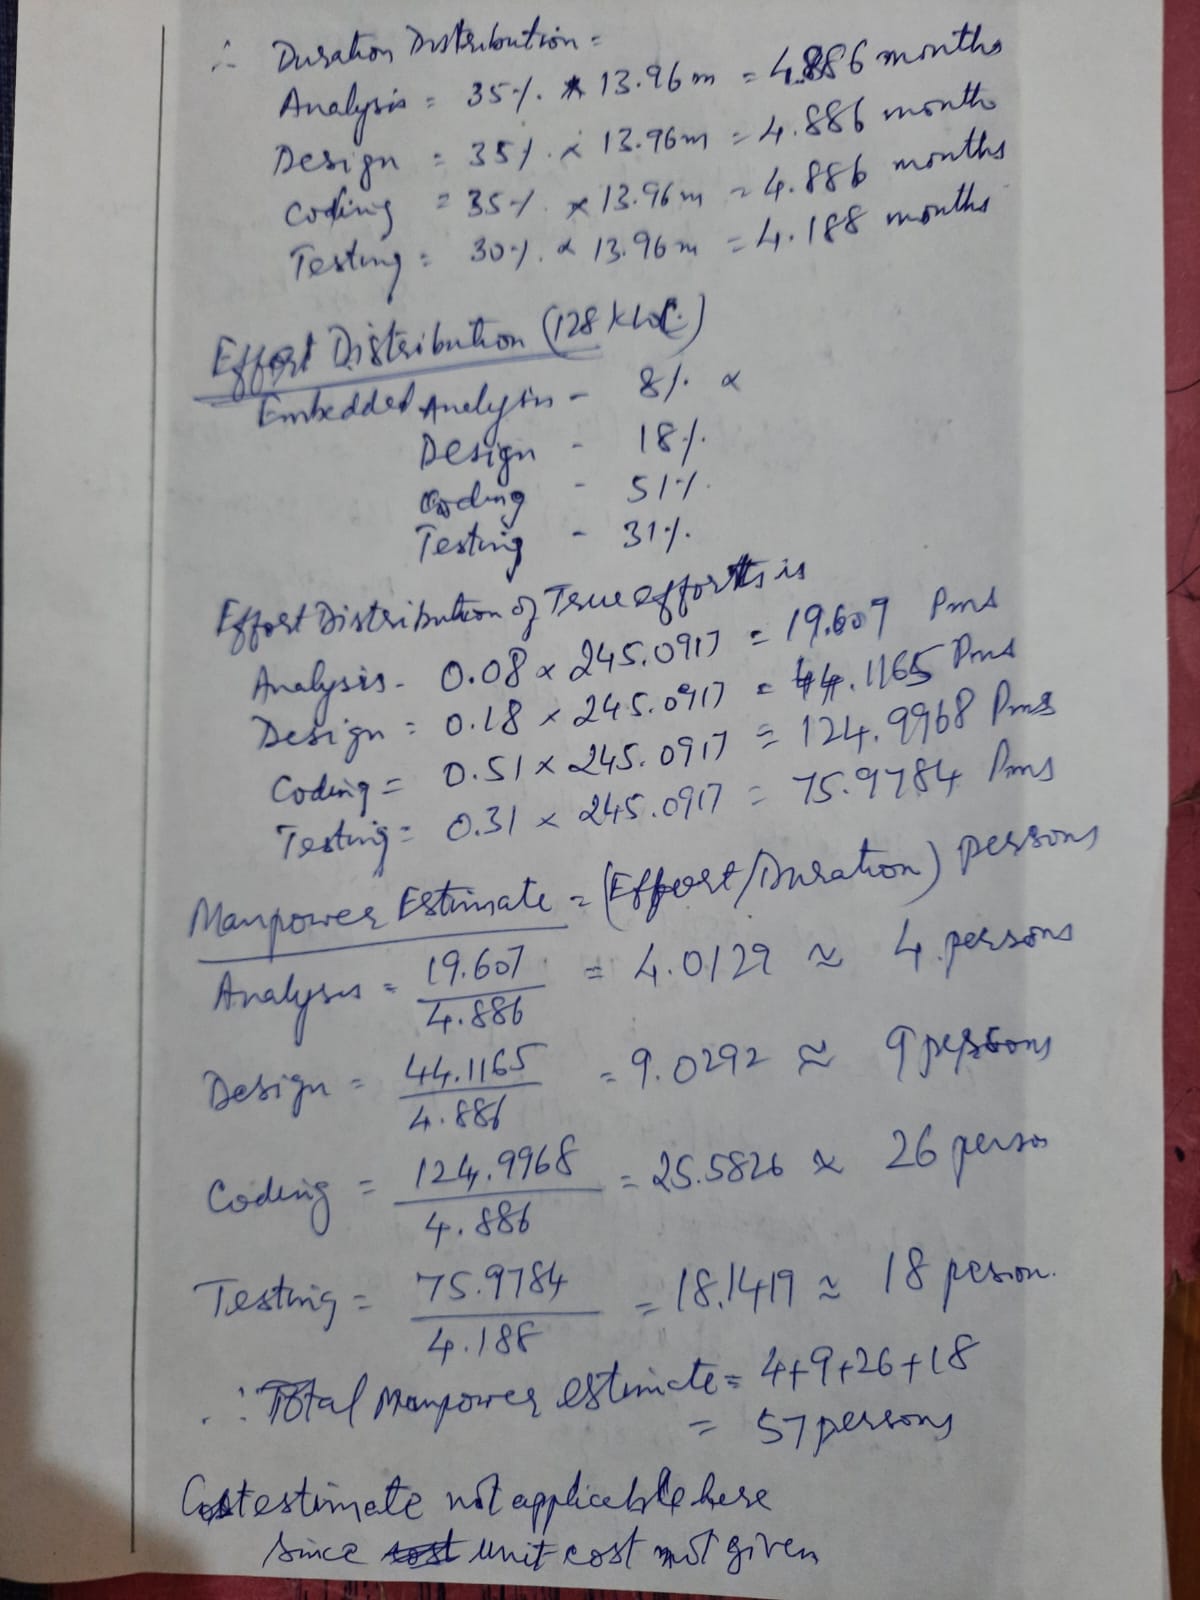 ∴ Duration Distribution =
Analysis = 35% * 13.96m = 4.886 months
Design = 35% × 13.96m = 4.886 month
Coding = 35% × 13.96m = 4.886 months
Testing = 30% × 13.96m = 4.188 months
Effort Distribution (128 KLOC)
Embedded Analysis - 8% ×
Design - 18%
Coding - 51%
Testing - 31%
Effort Distribution of True efforts is
Analysis - 0.08 × 245.0917 = 19.607 Pms
Design = 0.18 × 245.0917 = 44.1165 Pms
Coding = 0.51 × 245.0917 = 124.9968 Pms
Testing = 0.31 × 245.0917 = 75.9784 Pms
Manpower Estimate = (Effort/Duration) persons
Analysis = 19.607/4.886 = 4.0129 ≈ 4 persons
Design = 44.1165/4.886 = 9.0292 ≈ 9 persons
Coding = 124.9968/4.886 = 25.5826 ≈ 26 perso
Testing = 75.9784/4.188 = 18.1419 ≈ 18 person.
∴ Total Manpower estimate = 4+9+26+18
= 57 persons
Cost estimate not applicable here
since cost unit cost not given